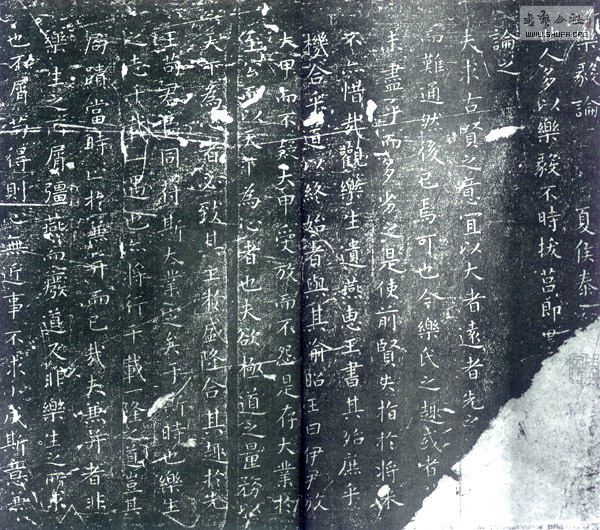 書藝公社
WWW.SHUFA.ORG
樂毅論 夏侯泰
人多以樂毅不時拔莒即
論之
夫求古賢之意宜以大者遠者先之
而難通然後已焉可也今樂氏之趣或者
未盡乎而多劣之是使前賢失指於將來
不亦惜哉觀樂生遺燕惠王書其殆庶乎
機合乎道以終始者與其喻昭王曰伊尹放
大甲而不疑大甲受放而不怨是存大業於
至公而以天下為心者也夫欲極道之量務以
天下為心者必致其主於盛隆合其趣於先
王苟君臣同符斯大業定矣于斯時也樂生
之志千載一遇也亦將行千載一隆之道豈其
局蹟當時止於兼并而已哉夫兼并者非
樂生之所屑彊燕而廢道又非樂生之所求
也不屑苟得則心無近事不求小成斯意兼